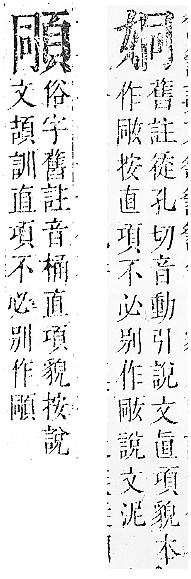 姛
舊註從孔切音動引說文直項貌本
作按直項不必別作說文泥
俗字舊註音桶直項貌按說
文頡訓直項不必別作